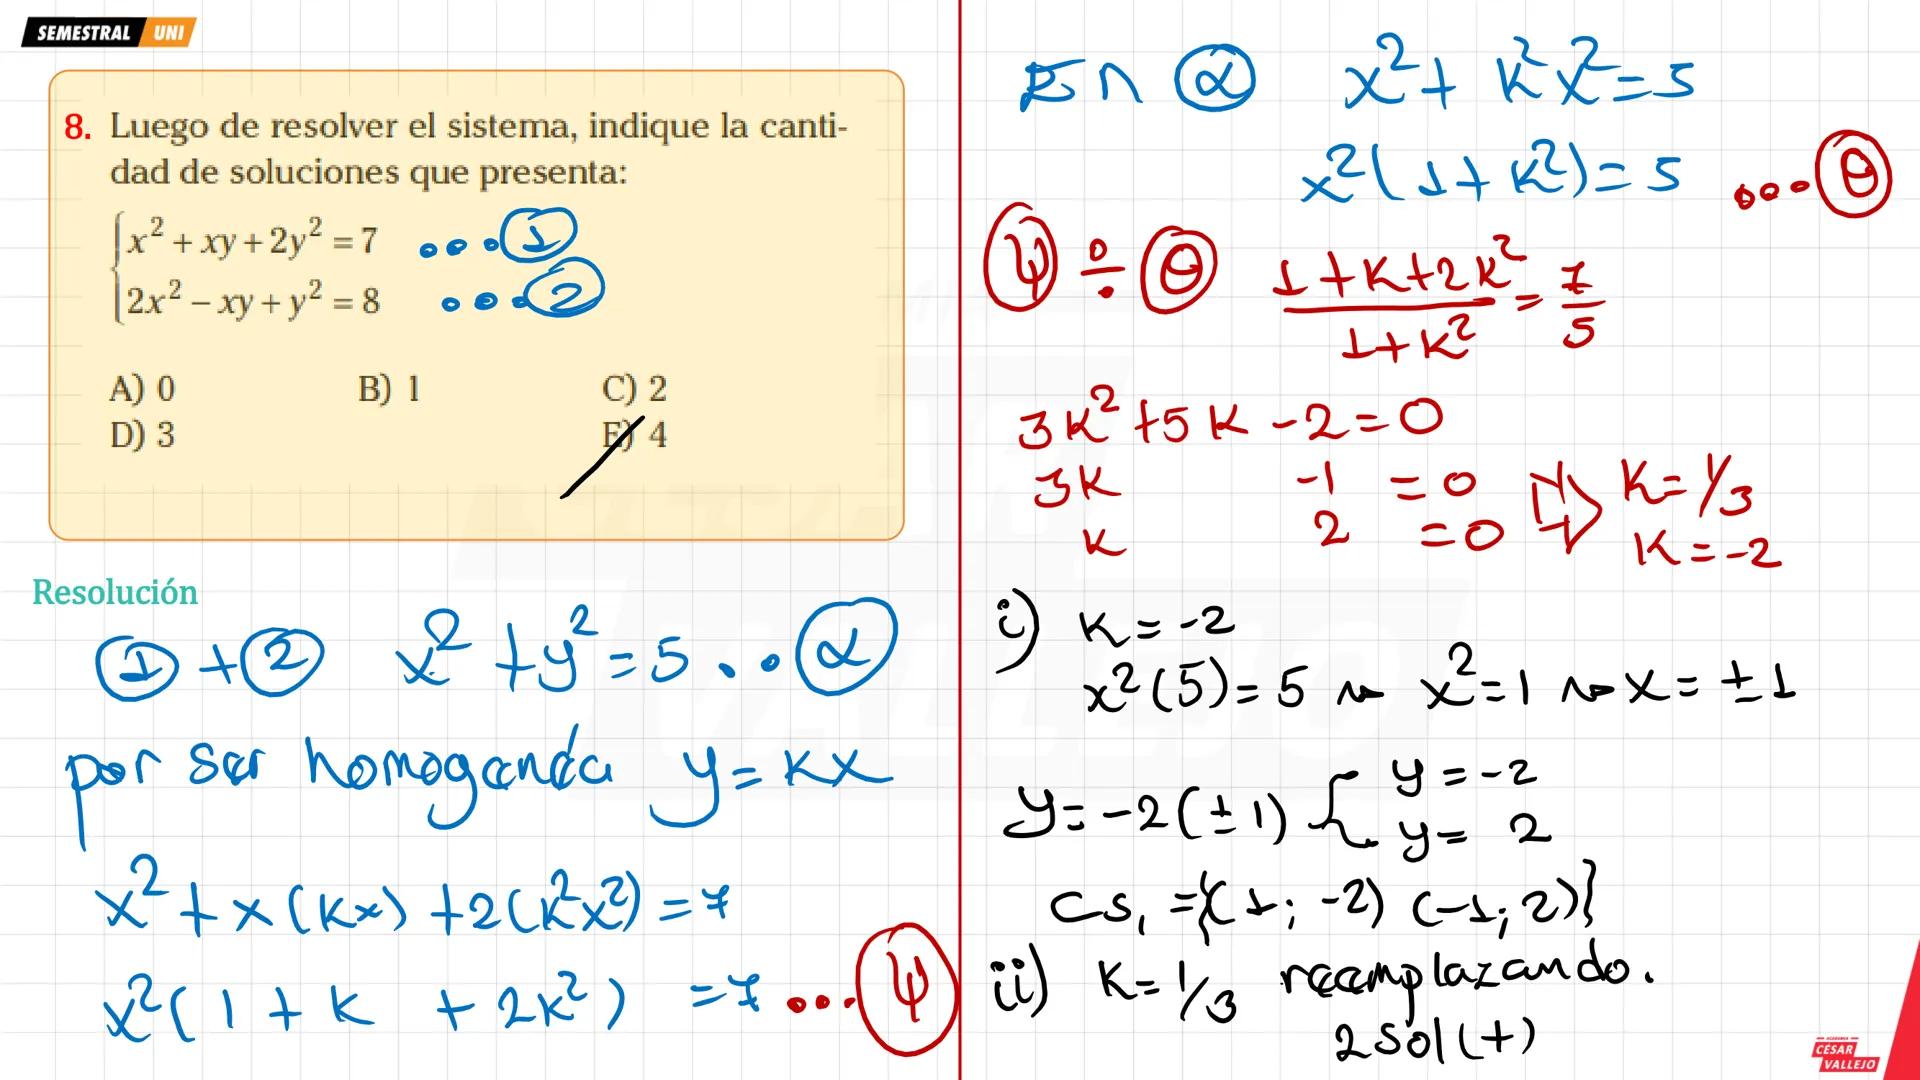 SEMESTRAL UNI
8. Luego de resolver el sistema, indique la canti-
dad de soluciones que presenta:
x² + xy + 2y² = 7 ...①
2x² − xy + y² = 8 ...②
A) 0 B) 1 C) 2
D) 3 E) 4
Resolución
① + ② x² + y² = 5 .. α
por ser homogenéa y = kx
x² + x(kx) + 2(k²x²) = 7
x²(1 + k + 2k²) = 7 ... ψ
En α x² + k²x² = 5
x²(1 + k²) = 5 ... θ
ψ ÷ θ 1+k+2k² / 1+k² = 7/5
3k² + 5k - 2 = 0
3k -1 = 0 ⇒ k = 1/3
k 2 = 0 k = -2
i) k = -2
x²(5) = 5 → x² = 1 → x = ±1
y = -2(±1) { y = -2
y = 2
CS₁ = {(1; -2) (-1; 2)}
ii) k = 1/3 reemplazando.
2 sol (+)
ACADEMIA
CÉSAR
VALLEJO